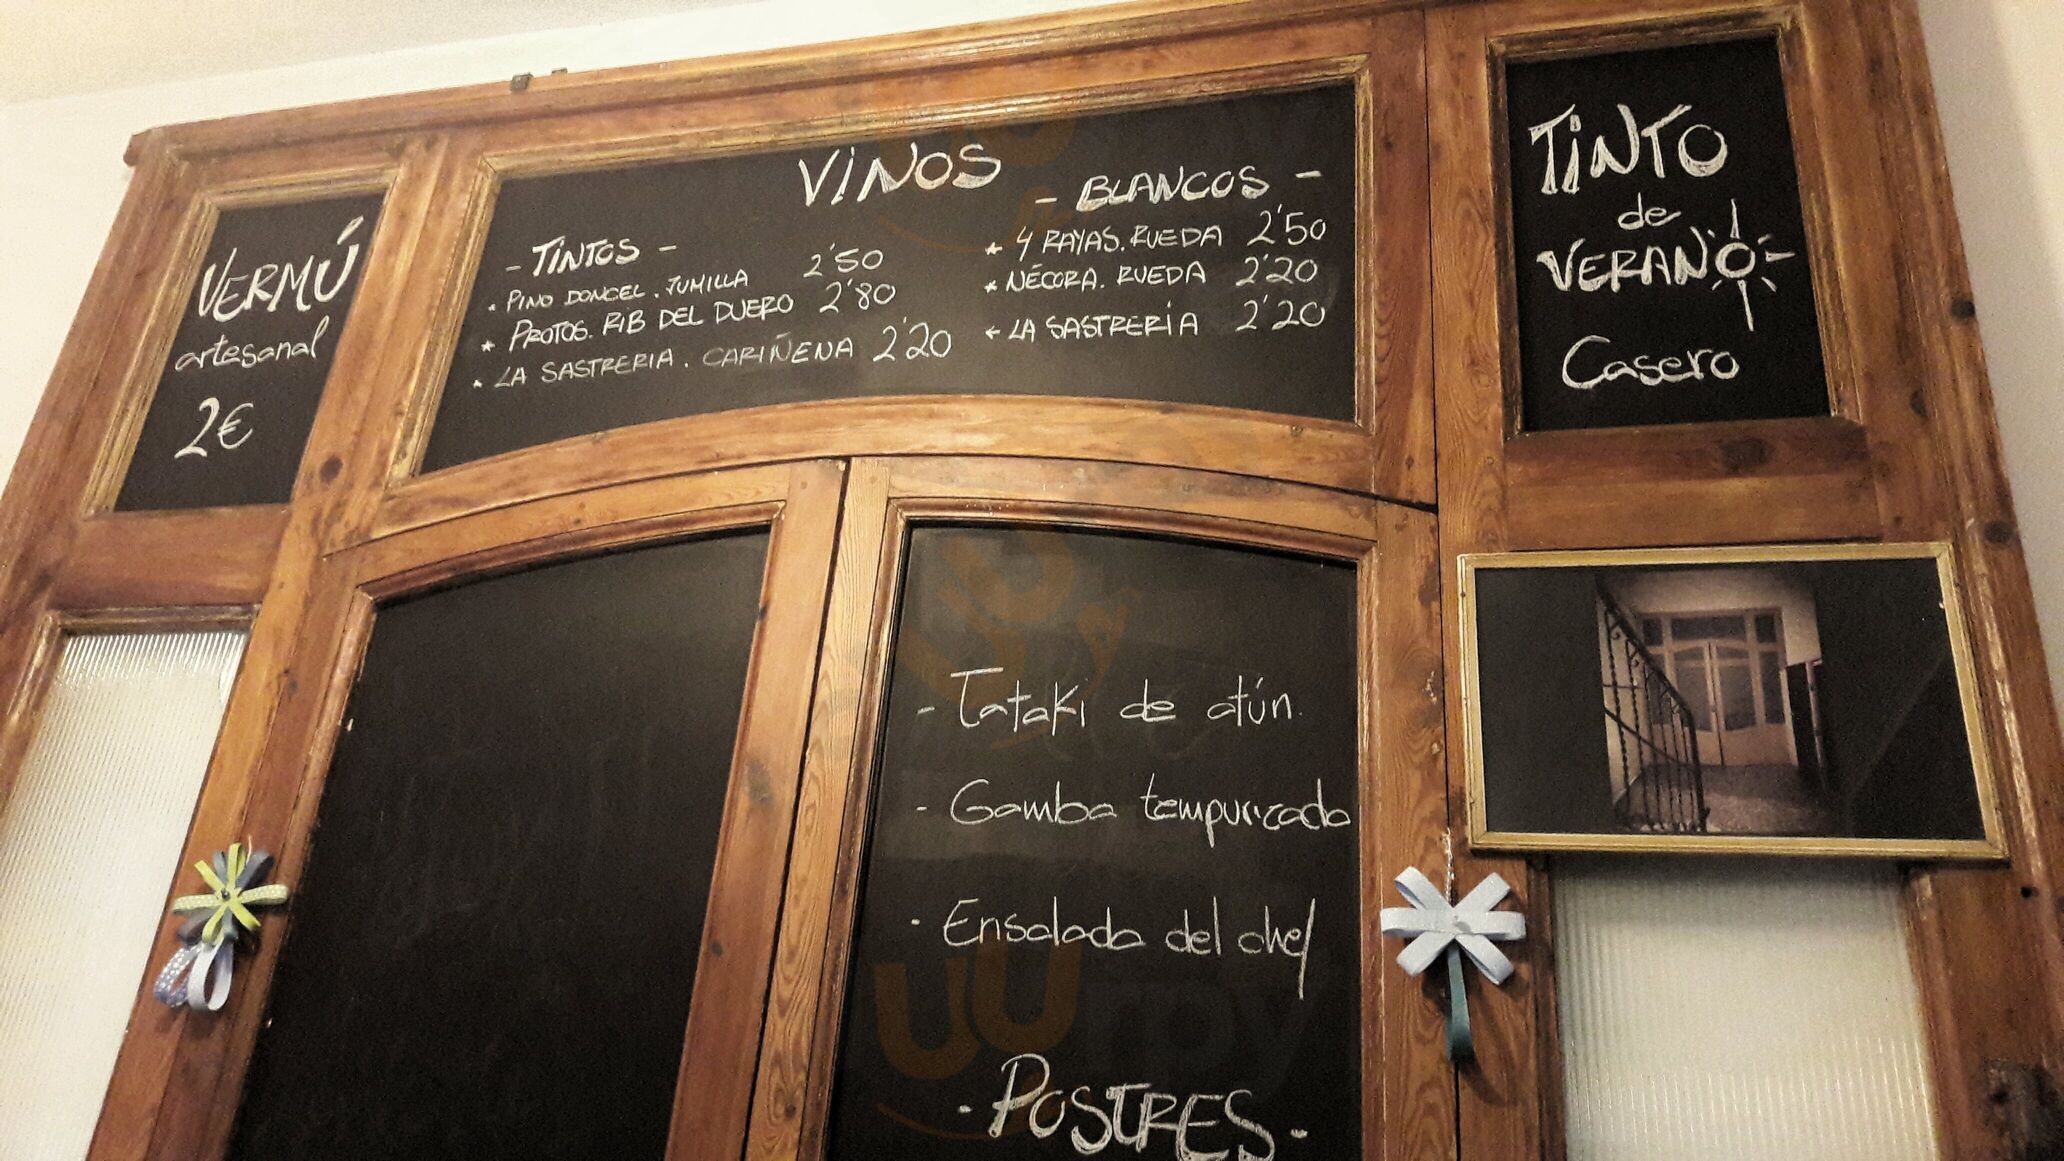 VERMÚ
artesanal
2€
VINOS
- TINTOS -
* PINO DONCEL. JUMILLA 2'50
* PROTOS. RIB DEL DUERO 2'80
* LA SASTRERIA. CARIÑENA 2'20
- BLANCOS -
* 4 RAYAS. RUEDA 2'50
* NÉCORA. RUEDA 2'20
* LA SASTRERIA 2'20
TINTO
de
VERANO
Casero
- Tataki de atún.
- Gamba tempurizada
- Ensalada del chef
- POSTRES -